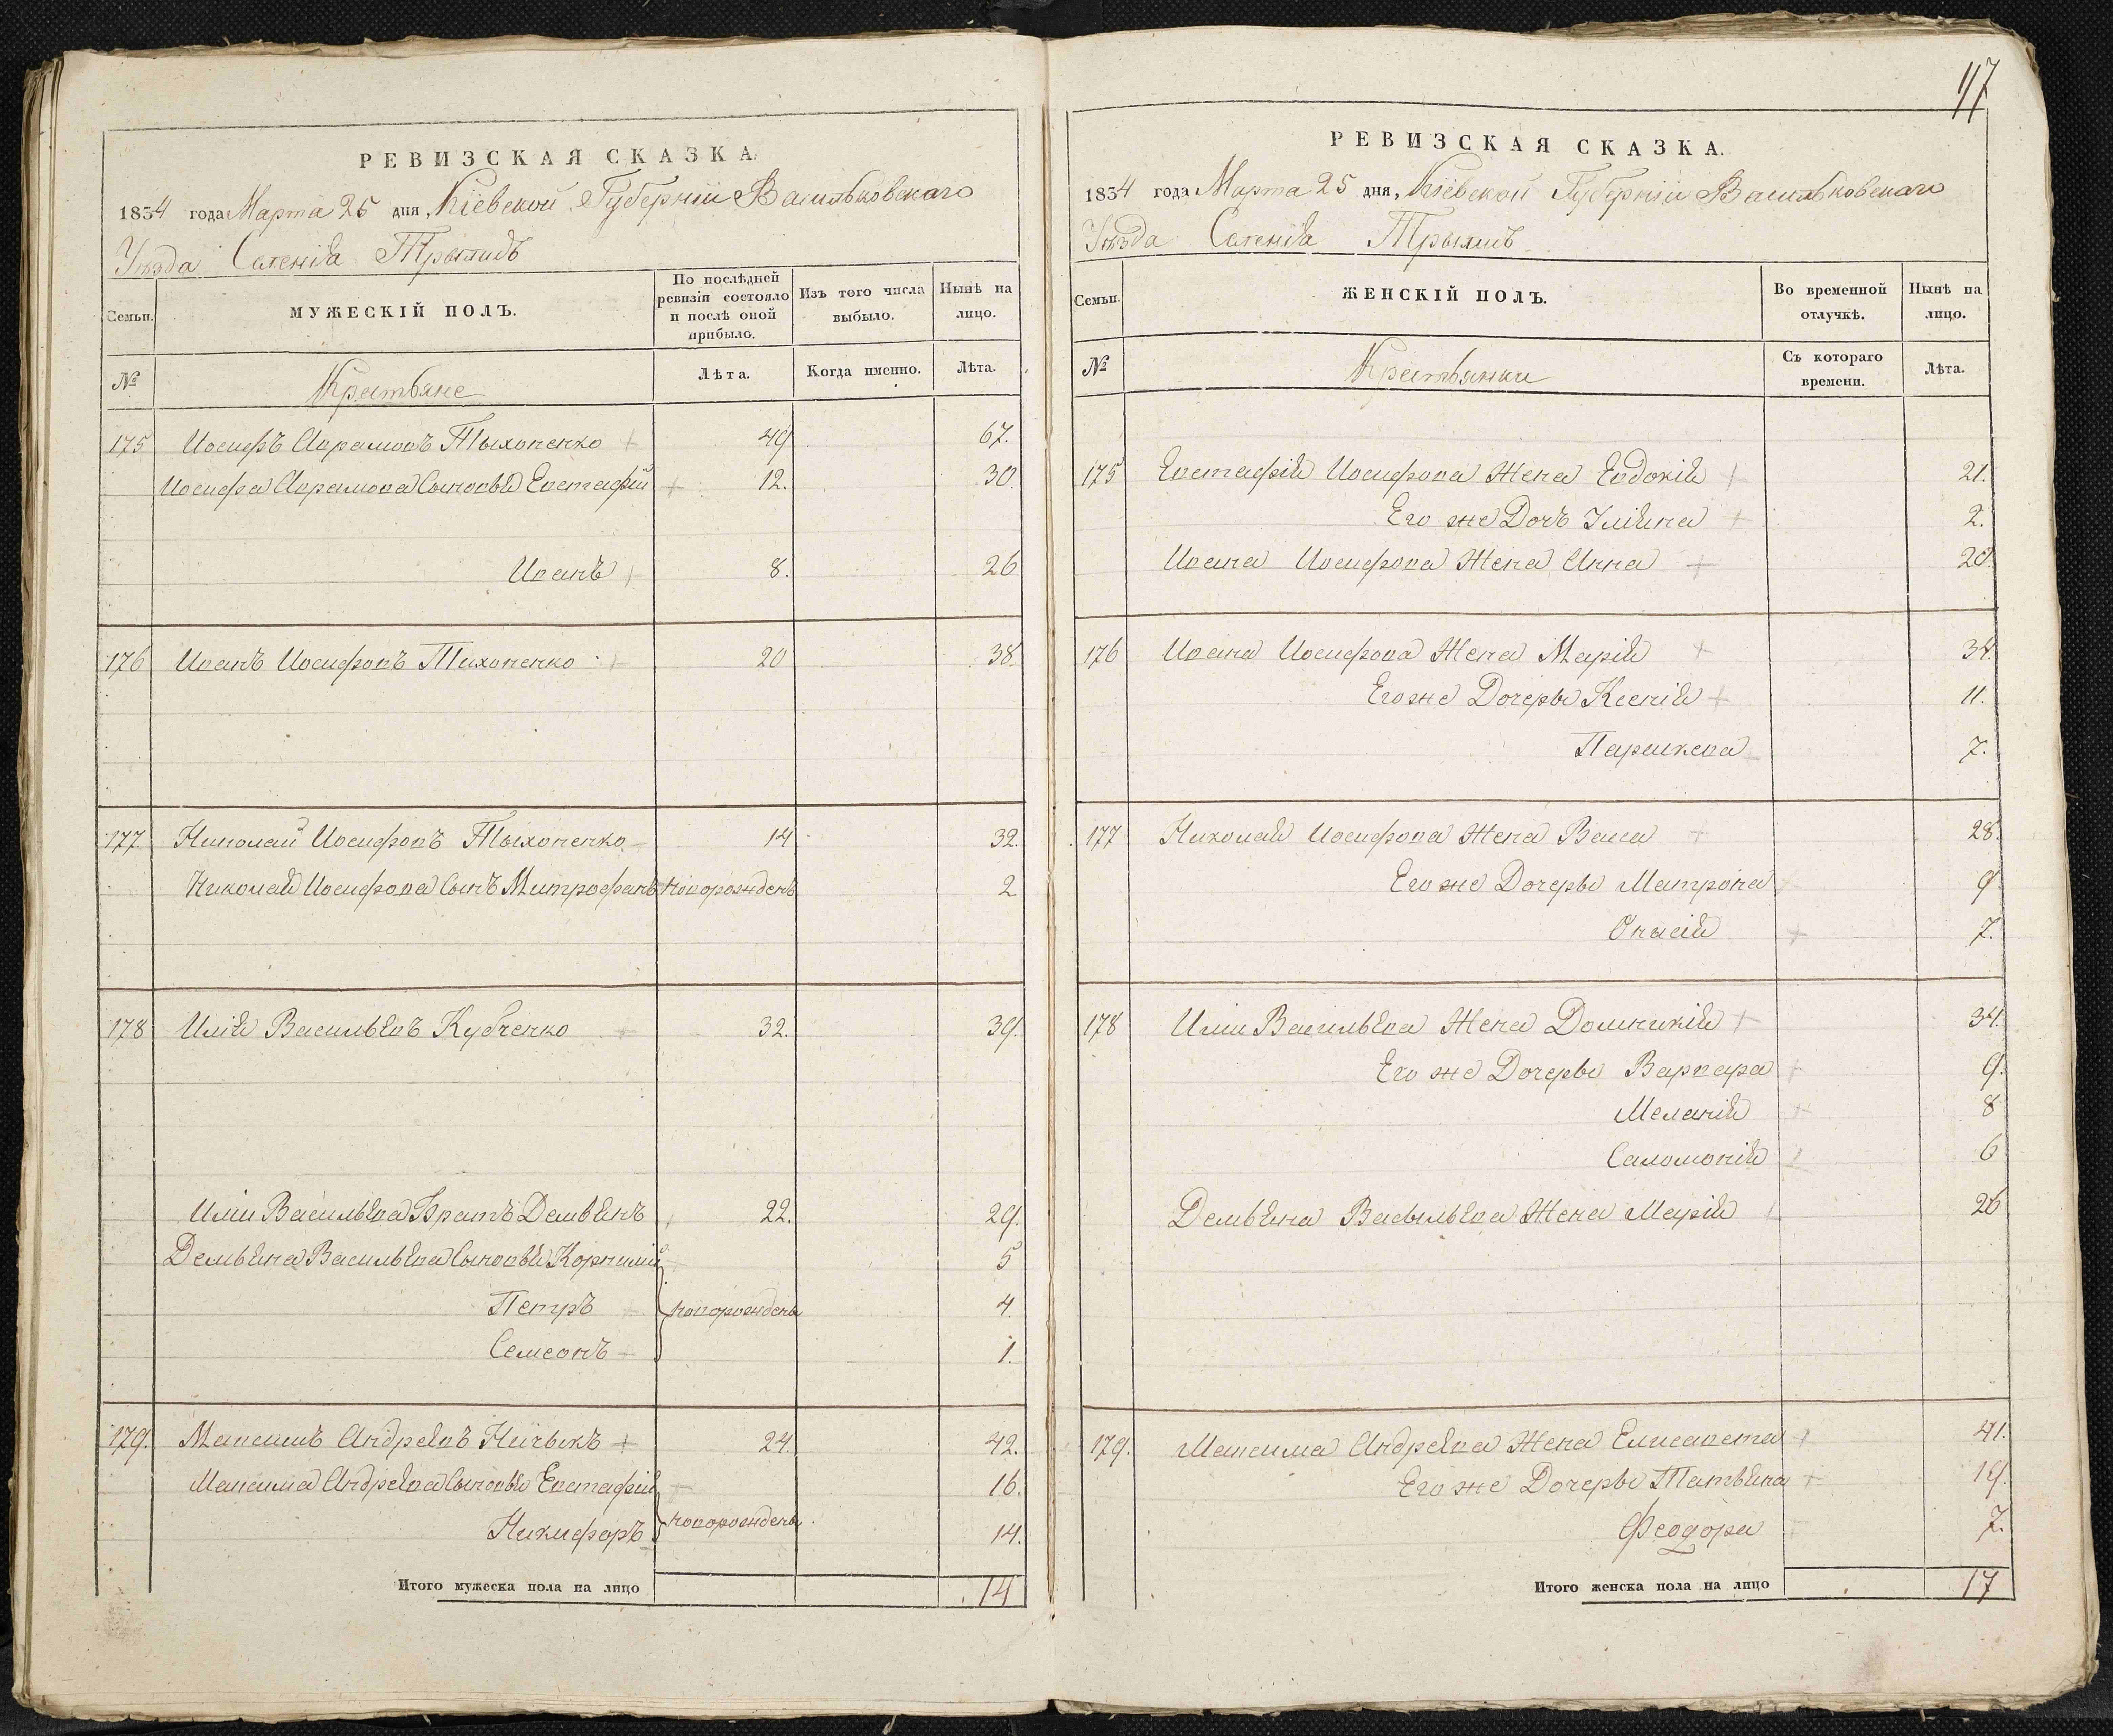 117
РЕВИЗСКАЯ СКАЗКА.
1834 года Марта 25 дня, Кіевской Губерніи Васильковскаго
Уѣзда Селенія
МУЖЕСКІЙ ПОЛЪ.
Семьи.
По послѣдней ревизіи состояло и послѣ оной прибыло.
Изъ того числа выбыло.
Нынѣ на лицо.
№
Крестьяне
Лѣта.
Когда именно.
Лѣта.
175 Иосифъ Аврамовъ Тыхоненко 49 67.
Иосифа Аврамова Сыновья Евстафій 12. 30.
Иванъ 8. 26
176 Иванъ Иосифовъ Тихоненко 20 38.
177 Николай Иосифовъ Тыхоненко 14 32.
Николая Иосифова Сынъ Митрофанъ новорожденъ 2
178 Илія Васильевъ Кубченко 32. 39.
Иліи Васильева Братъ Демьянъ 22. 29.
Демьяна Васильева Сыновья Корнилій 5
Петръ новорождены 4.
Семеонъ 1.
179. Максимъ Андреевъ 24. 42.
Максима Андреева Сыновья Евстафій 16.
новорождены
Никифоръ 14.
Итого мужеска пола на лицо 14
РЕВИЗСКАЯ СКАЗКА.
1834 года Марта 25 дня, Кіевской Губерніи Васильковскаго
Уѣзда Селенія
Семьи.
ЖЕНСКІЙ ПОЛЪ.
Во временной отлучкѣ.
Нынѣ на лицо.
№
Крестьянки
Съ котораго времени.
Лѣта.
175 Евстафія Иосифова Жена Евдокія 21.
Его же Дочь 2.
Ивана Иосифова Жена Анна 20.
176 Ивана Иосифова Жена Марія 34.
Его же Дочеры Ксенія 11.
Параскева 7.
177 Николая Иосифова Жена Васса 28.
Его же Дочеры Матрона 9
Онысія 7.
178 Иліи Васильева Жена Домникія 34.
Его же Дочеры Варвара 9.
Меланія 8
Саломонія 6
Демьяна Васыльева Жена Марія 26
179. Максима Андреева Жена Елисавета 41.
Его же Дочеры Татьяна 19.
Феодора 7.
Итого женска пола на лицо 17